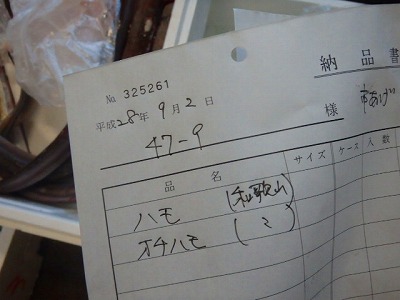 No. 325261
納品書
平成28年9月2日
47-9
様
品名 サイズ ケース 人数
ハモ (和歌山)
オチハモ (〃)